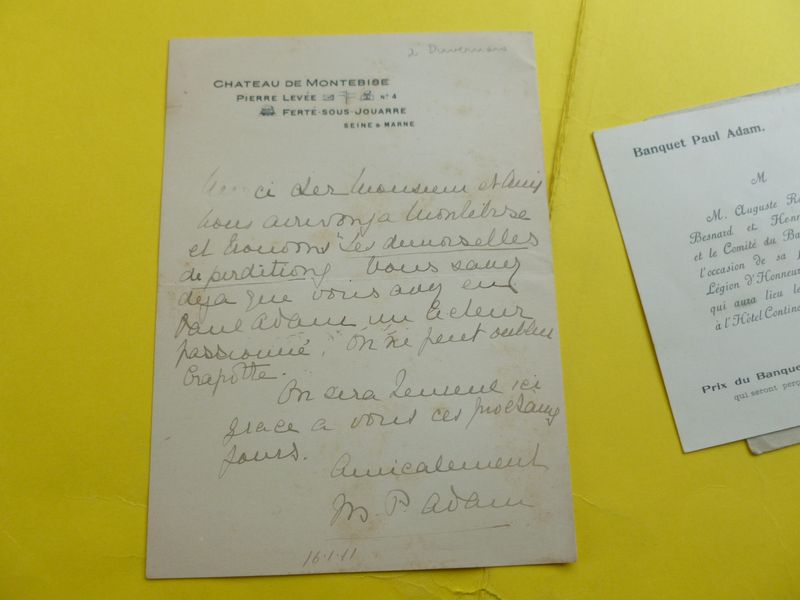 à Duvernois
CHATEAU DE MONTEBISE
PIERRE LEVÉE N° 4
FERTÉ-SOUS-JOUARRE
SEINE & MARNE
Merci cher Monsieur et Ami
Nous arrivons à Montebise
et trouvons "Les demoiselles
de perdition". Vous savez
déja que vous avez en
Paul Adam un lecteur
passionné. On ne peut oublier
Crapotte.
On sera ici
grace a vous ces prochains
jours.
Amicalement
M. P. Adam
16-1-11
Banquet Paul Adam.
M
M. Auguste
Besnard et
et le Comité du
l'occasion de sa
Légion d'Honneur
qui aura lieu le
à l'Hôtel
Prix du Banque
qui seront